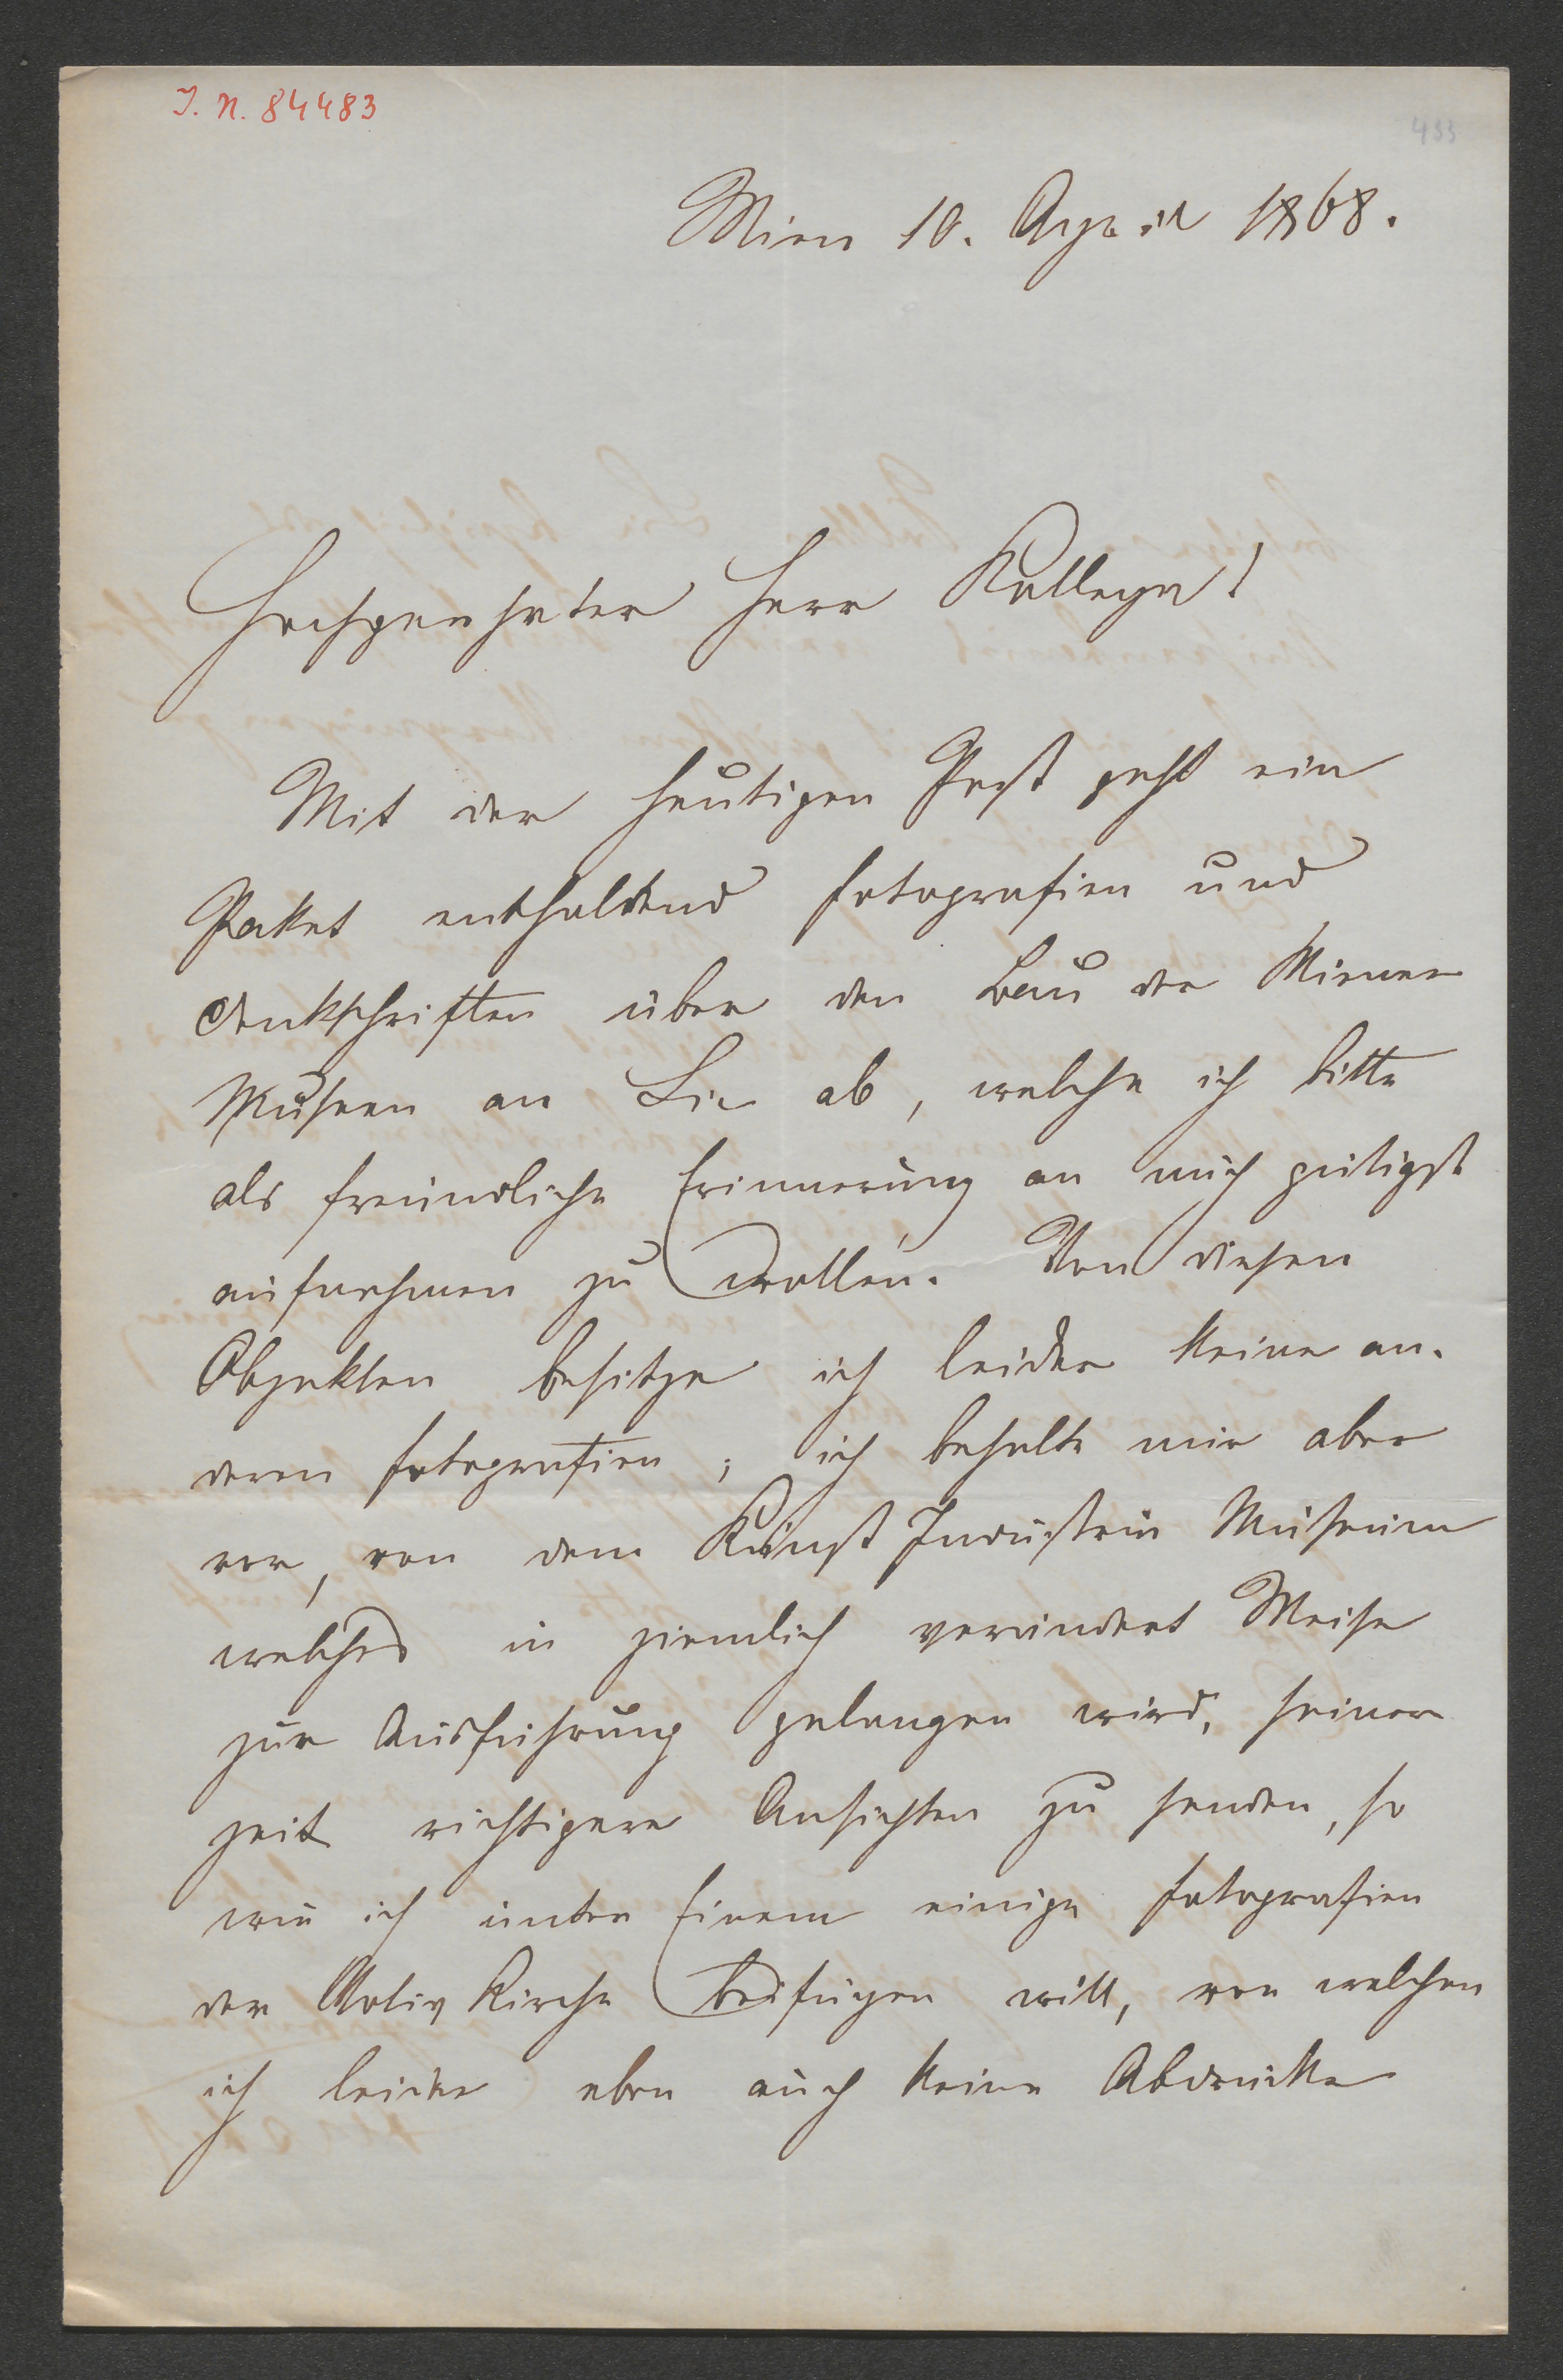 I. N. 84483
433
Wien 10. April 1868.
Hochgeehrter Herr Kollege!
Mit der heutigen Post geht ein
Paket enthaltend Fotografien und
Denkschriften über den Bau der Wiener
Museen an Sie ab, welche ich bitte
als freundliche Erinnerung an mich gütigst
aufnehmen zu wollen. Von diesen
Objekten besitze ich leider keine an-
deren Fotografien; ich behalte mir aber
vor, von dem Kunst Industrie Museum
welches in ziemlich verändert Weise
zur Ausführung gelangen wird, seiner
zeit richtigere Ansichten zu senden, so
wie ich unter Einem einige Fotografien
der Votiv Kirche beifügen will, von welchen
ich leider eben auch keine Abdrücke